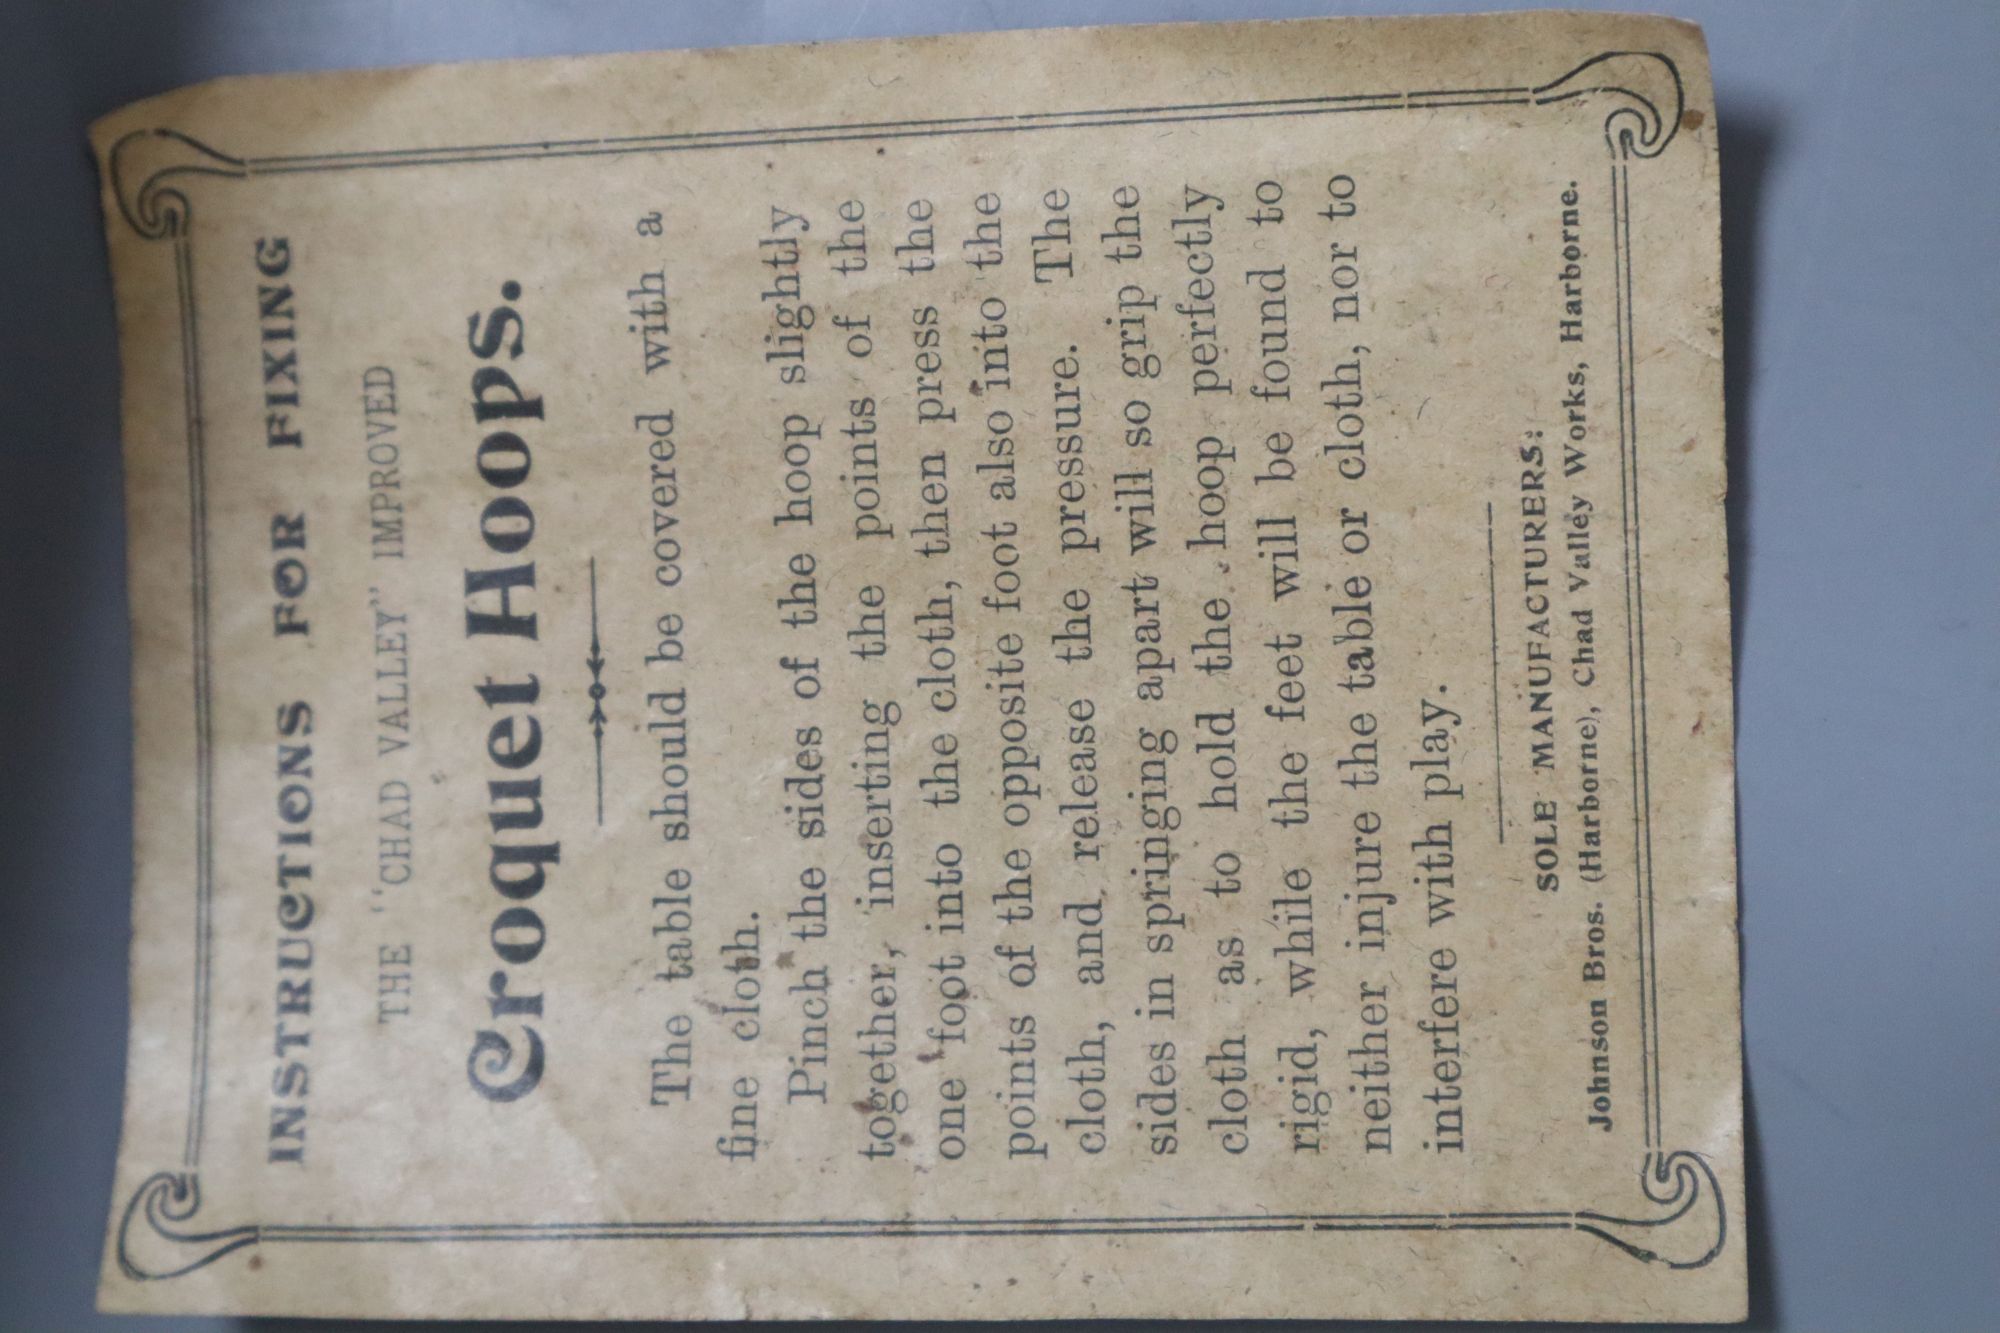 INSTRUCTIONS FOR FIXING
THE "CHAD VALLEY" IMPROVED
Croquet Hoops.
The table should be covered with a
fine cloth.
Pinch the sides of the hoop slightly
together, inserting the points of the
one foot into the cloth, then press the
points of the opposite foot also into the
cloth, and release the pressure. The
sides in springing apart will so grip the
cloth as to hold the hoop perfectly
rigid, while the feet will be found to
neither injure the table or cloth, nor to
interfere with play.
SOLE MANUFACTURERS:
Johnson Bros. (Harborne), Chad Valley Works, Harborne.